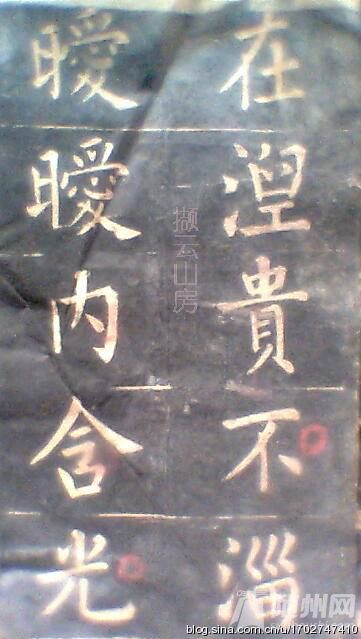 在湼貴不淄
曖曖内含光
撷云山房
blog.sina.com.cn/u/1702747410